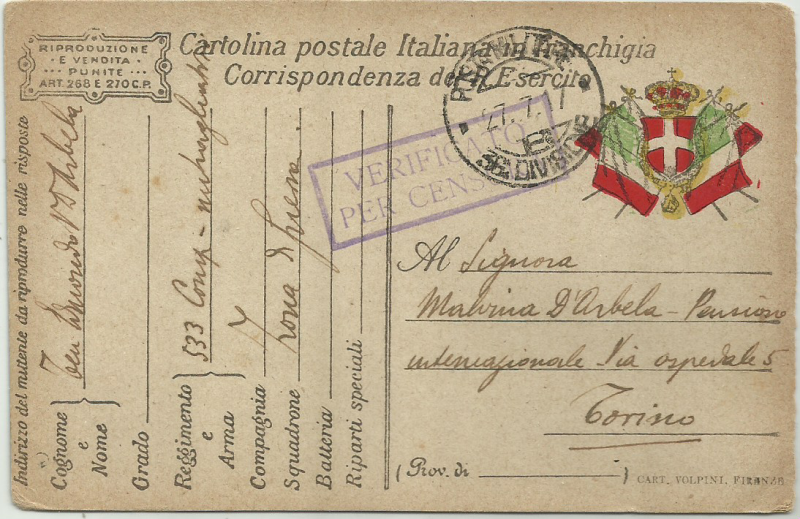 RIPRODUZIONE
E VENDITA
PUNITE
ART. 268 E 270 C.P.
Cartolina postale Italiana in franchigia
Corrispondenza del R. Esercito
POSTA MILITARE
27.7.17
B
36ª DIVISIONE
VERIFICATO
PER CENSURA
Indirizzo del mittente da riprodurre nelle risposte
Cognome e Nome
Ten Edmondo D'Arbela
Grado
Reggimento e Arma
533 Comp. mitraglieri
Compagnia
Squadrone
Zona di guerra
Batteria
Riparti speciali
Al Signora
Malvina D'Arbela - Pensione
internazionale Via ospedale 5
Torino
(Prov. di )
CART. VOLPINI. FIRENZE